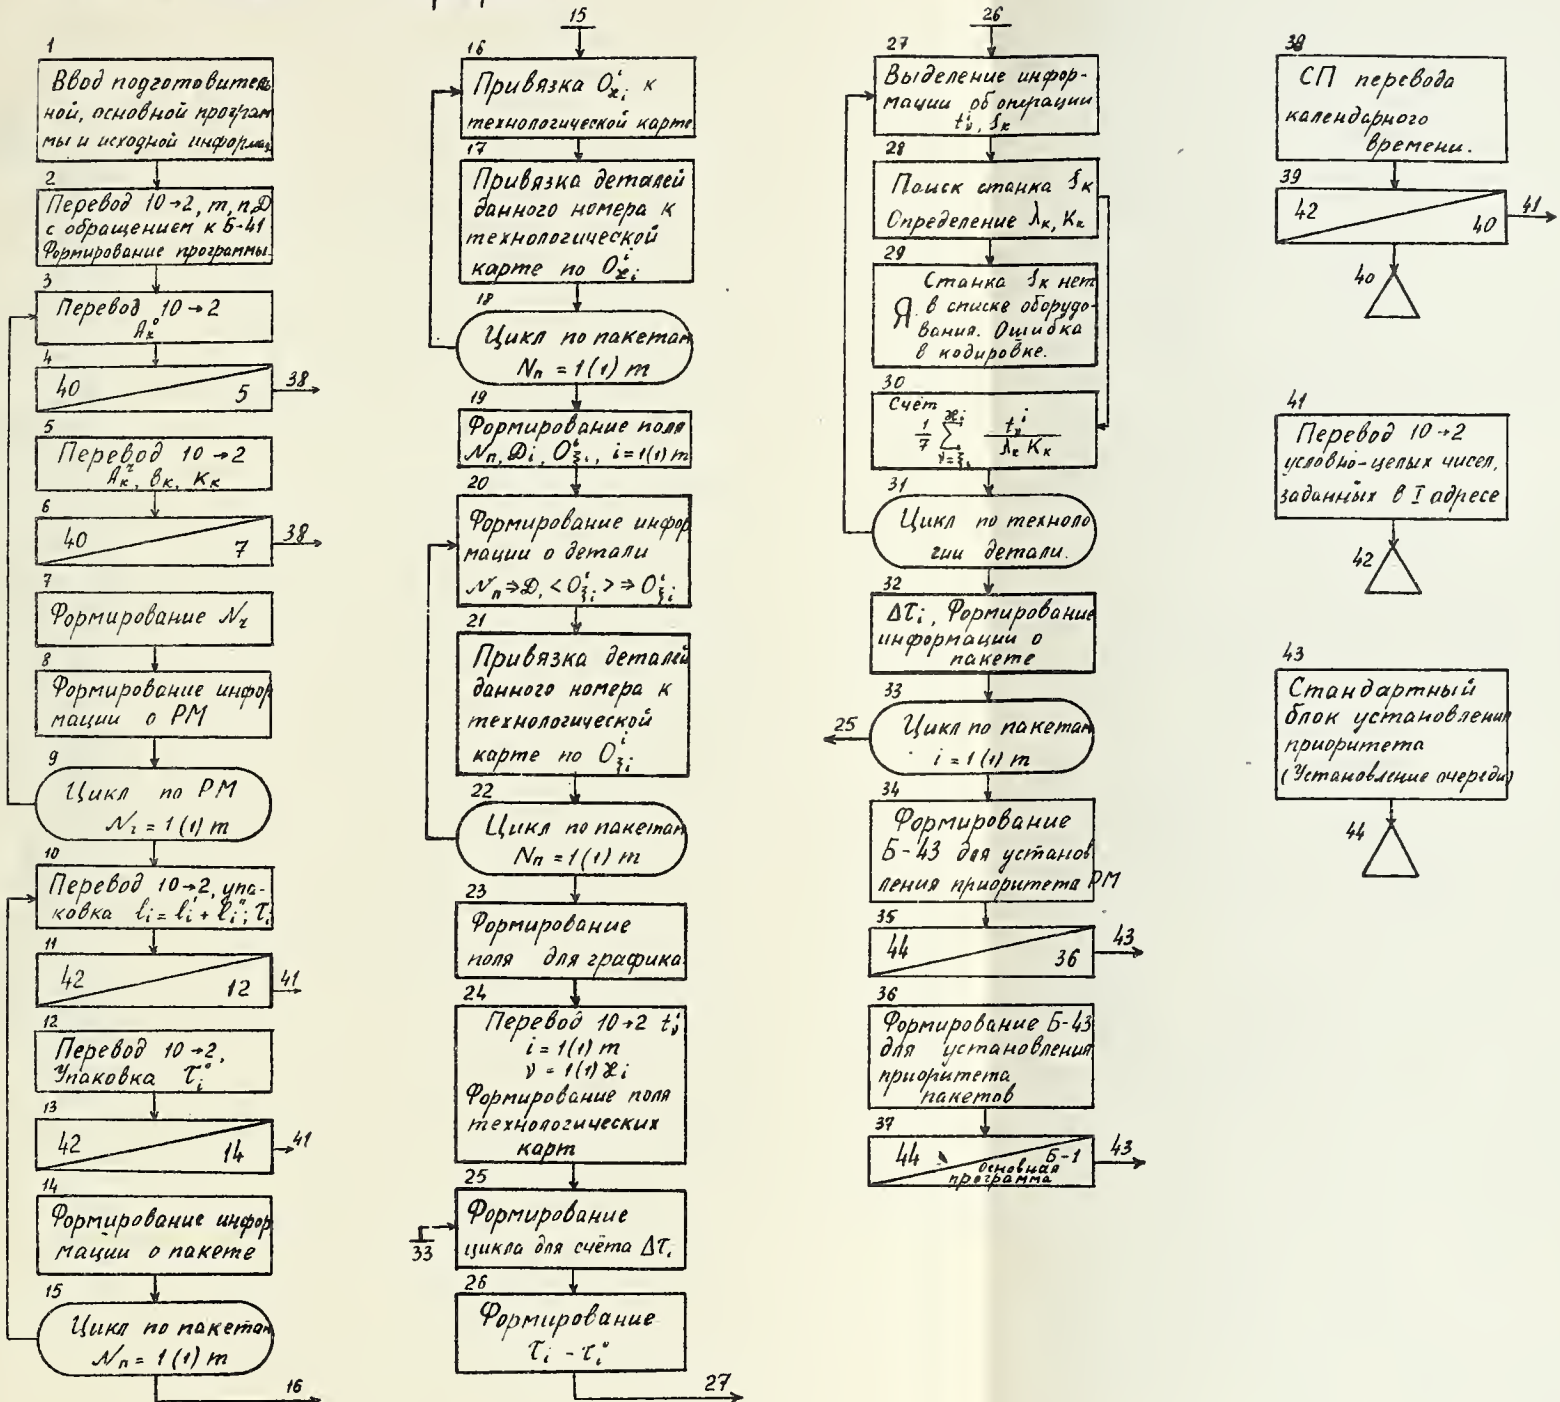 1
Ввод подготовитель
ной, основной програм
мы и исходной информац.
2
Перевод 10→2, m, n, Д
с обращением к Б-41
Формирование программы.
3
Перевод 10→2
4
40 5 38
5
Перевод 10→2
6
40 7 38
7
Формирование
8
Формирование инфор
мации о РМ
9
Цикл по РМ
N₂ = 1(1) m
10
Перевод 10→2, упа-
ковка lᵢ = lᵢ' + lᵢ"; τᵢ
11
42 12 41
12
Перевод 10→2,
Упаковка τᵢ°
13
42 14 41
14
Формирование инфор
мации о пакете
15
Цикл по пакетам
Nп = 1(1) m
16
15
16
Привязка Oⁱϰᵢ к
технологической карте
17
Привязка деталей
данного номера к
технологической
карте по Oⁱϰᵢ
18
Цикл по пакетам
Nп = 1(1) m
19
Формирование поля
Nп, Дi, Oⁱξᵢ, i = 1(1) m
20
Формирование инфор
мации о детали
Nп ⇒ Д, < Oⁱξᵢ > ⇒ Oⁱξᵢ
21
Привязка деталей
данного номера к
технологической
карте по Oⁱξᵢ
22
Цикл по пакетам
Nп = 1(1) m
23
Формирование
поля для графика
24
Перевод 10→2 tⁱν
i = 1(1) m
ν = 1(1) ϰᵢ
Формирование поля
технологических
карт
25
Формирование
цикла для счёта Δτᵢ
33
26
Формирование
τᵢ - τᵢ°
27
26
27
Выделение инфор-
мации об операции
tⁱν, Sк
28
Поиск станка Sк
Определение λк, Кк
29
Станка Sк нет
Я. в списке оборудо-
вания. Ошибка
в кодировке.
30
Счёт
1/7 Σ(ν=ξᵢ, ϰᵢ) tᵥⁱ / λк Кк
31
Цикл по техноло
гии детали.
32
Δτᵢ, Формирование
информации о
пакете
33
25 Цикл по пакетам
i = 1(1) m
34
Формирование
Б-43 для установ
ления приоритета РМ
35
44 36 43
36
Формирование Б-43
для установления
приоритета
пакетов
37
44 Б-1 43
основная
программа
38
СП перевода
календарного
времени.
39
42 40 41
40
41
Перевод 10→2
условно-целых чисел,
заданных в I адресе
42
43
Стандартный
блок установления
приоритета
(Установление очереди)
44